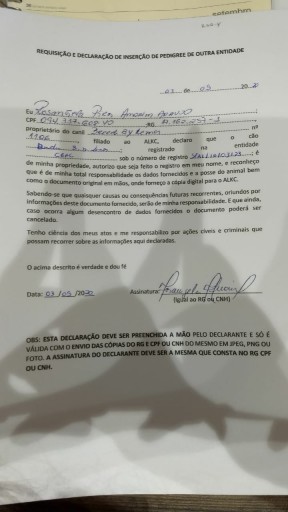 setembro
REQUISIÇÃO E DECLARAÇÃO DE INSERÇÃO DE PEDIGREE DE OUTRA ENTIDADE
03 de 05
Eu
CPF RG
proprietário do canil nº
filiado ao ALKC, declaro que o cão
registrado na entidade
sob o número de registro é
de minha propriedade, autorizo que seja feito o registro em meu nome, e reconheço
que é de minha total responsabilidade os dados fornecidos e a posse do animal bem
como o documento original em mãos, onde forneço a cópia digital para o ALKC.
Sabendo-se que quaisquer causas ou consequências futuras recorrentes, oriundos por
informações deste documento fornecido, serão de minha responsabilidade. E que ainda,
caso ocorra algum desencontro de dados fornecidos o documento poderá ser
cancelado.
Tenho ciência meus atos e me responsabilizo por ações cíveis e criminais que
possam recorrer sobre as informações aqui declarados.
O acima descrito é verdade e dou fé
Data: 03/05/ Assinatura:
(igual ao RG ou CNH)
OBS: ESTA DECLARAÇÃO DEVE SER PREENCHIDA A MÃO PELO DECLARANTE E SÓ É
VÁLIDA COM O ENVIO DAS CÓPIAS DO RG E CPF OU CNH DO MESMO EM JPEG, PNG OU
FOTO. A ASSINATURA DO DECLARANTE DEVE SER A MESMA QUE CONSTA NO RG CPF
OU CNH.